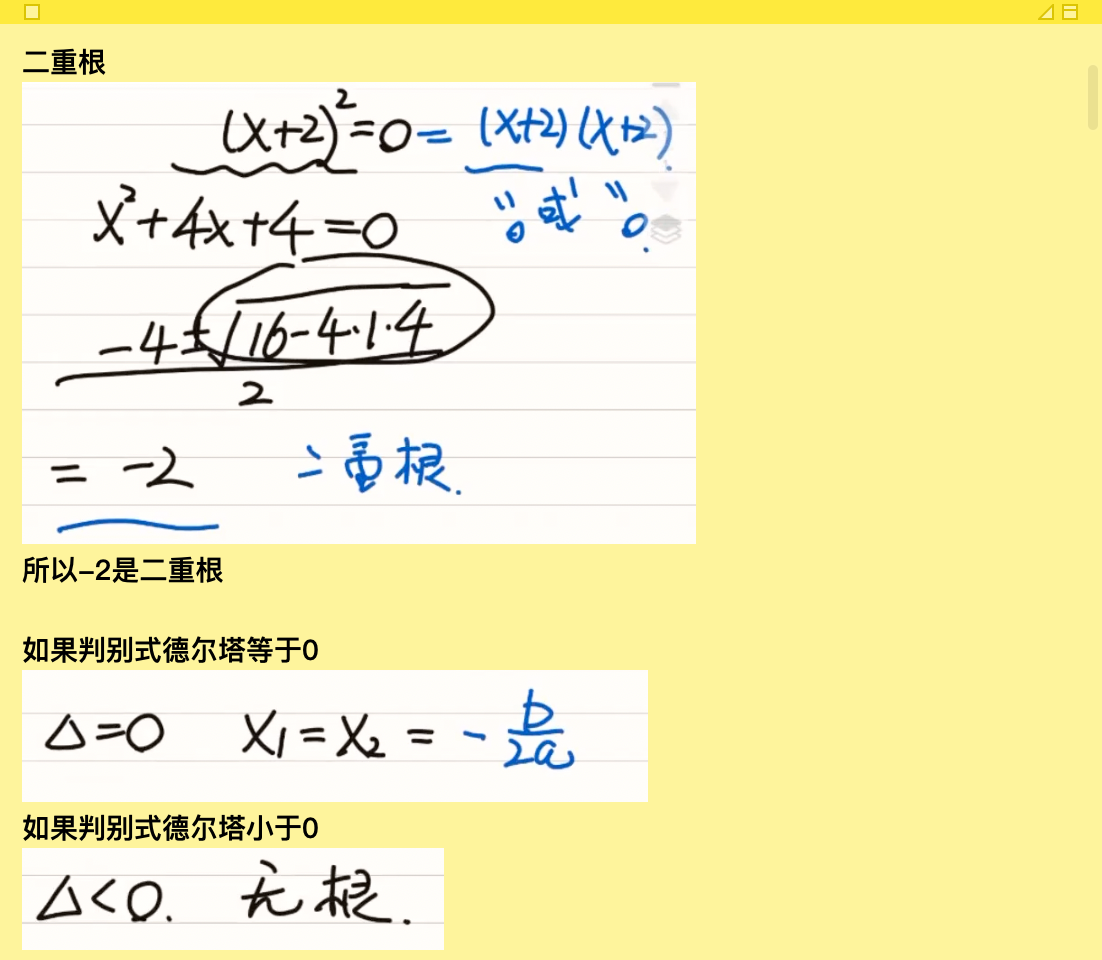 二重根
(x+2)²=0=(x+2)(x+2)
x²+4x+4=0
"0 或 "0.
-4±√16-4·1·4
2
= -2 二重根.
所以-2是二重根
如果判别式德尔塔等于0
△=0 X₁=X₂=-b/2a
如果判别式德尔塔小于0
△<0. 无根.